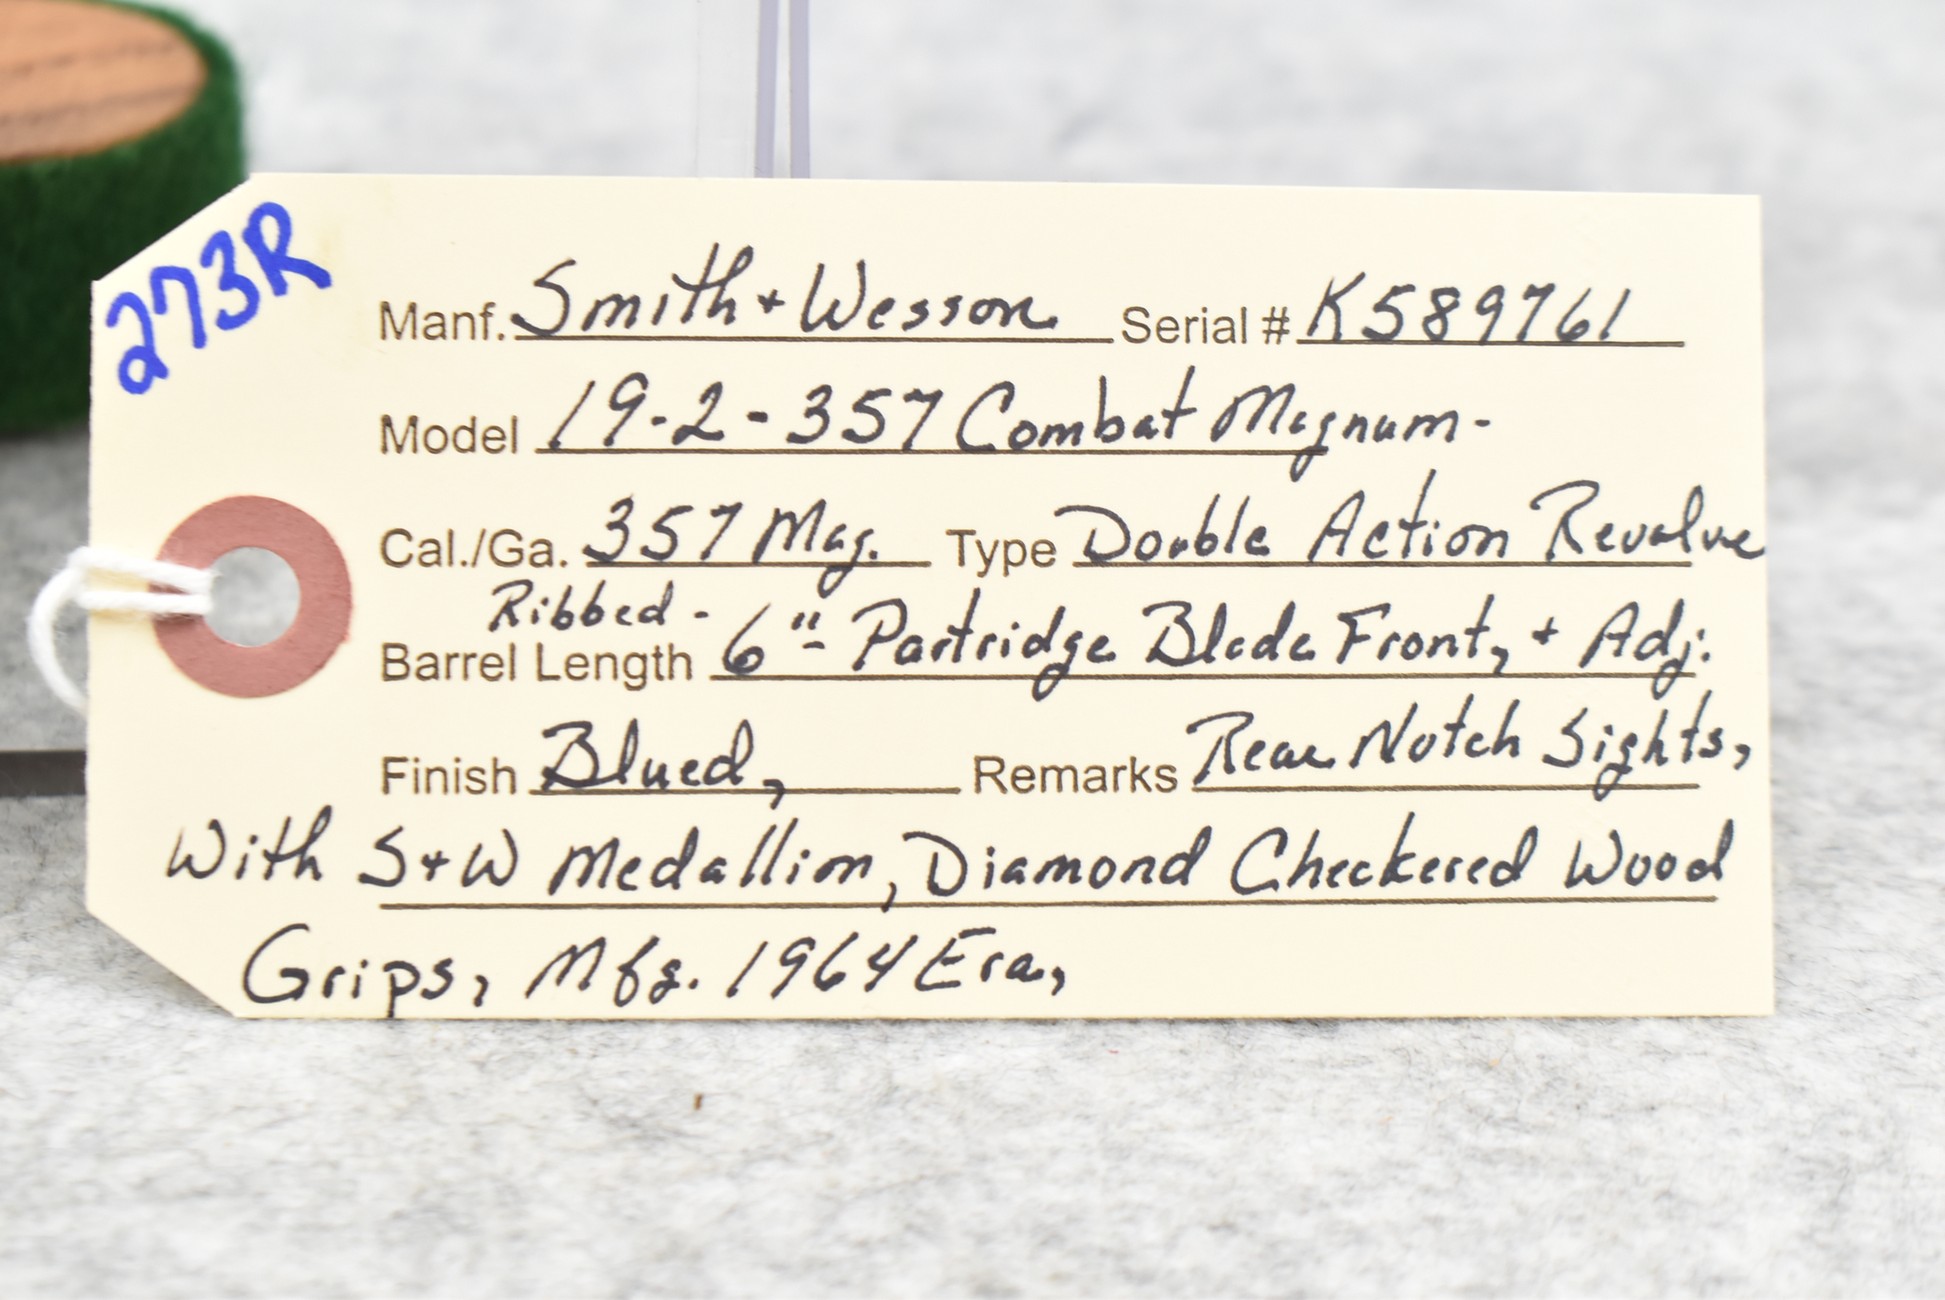 273R
Manf. Smith + Wesson Serial # K589761
Model 19-2-357 Combat Magnum-
Cal./Ga. 357 Mag. Type Double Action Revolve
Ribbed -
Barrel Length 6"- Partridge Blade Front, + Adj.
Finish Blued, Remarks Rear Notch Sights,
With S+W Medallion, Diamond Checkered Wood
Grips, Mfg. 1964 Era,